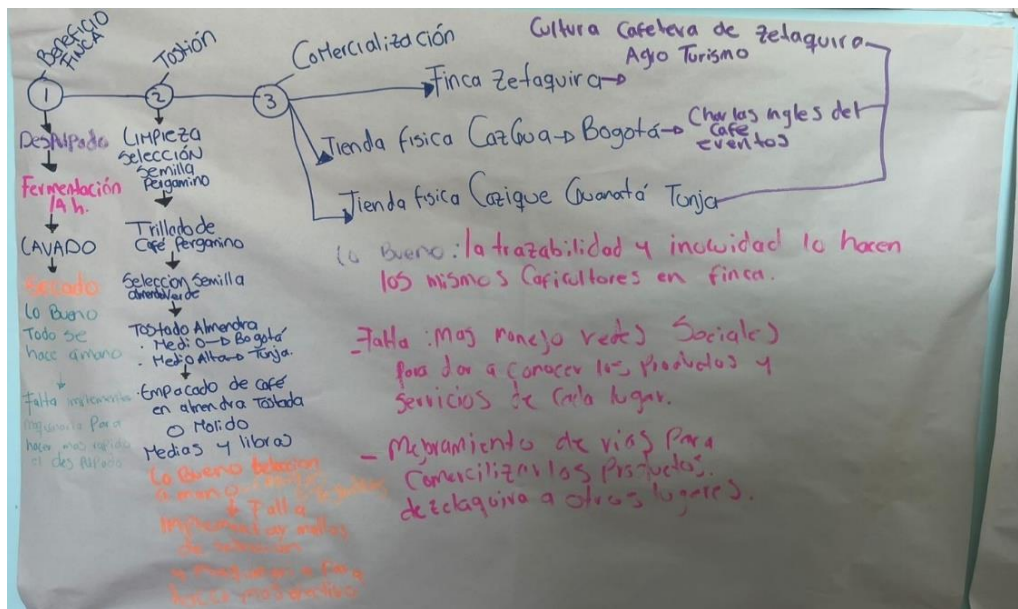 BENEFICIO
FINCA
1
DesPulpado
Fermentación
14 h.
LAVADO
Secado
Lo Bueno
Todo se
hace amano
Falta
Para
hacer mas rapido
el desPulpado
Tostión
2
LIMPIEZA
Selección
Semilla
Pergamino
Trillado de
Café Pergamino
Seleccion Semilla
almendra verde
Tostado Almendra
. Medio → Bogotá
. Medio Alta → Tunja.
. Empacado de café
en almendra Tostada
O Molido
Medias y libras
Lo Bueno
amano
Falta
Implementar
3
Comercialización
Finca Zetaquira →
Cultura Cafetera de Zetaquira
Agro Turismo
Tienda fisica CazGua → Bogotá →
Charlas ingles del
cafe
eventos
Tienda fisica Cazique Guanatá Tunja
Lo Bueno: la trazabilidad y inocuidad lo hacen
los mismos Caficultores en finca.
- Falta: Mas manejo redes Sociales
para dar a conocer los Productos y
Servicios de Cada lugar.
- Mejoramiento de vias Para
Comercilizar los Productos.
de zetaquira a otros lugares.